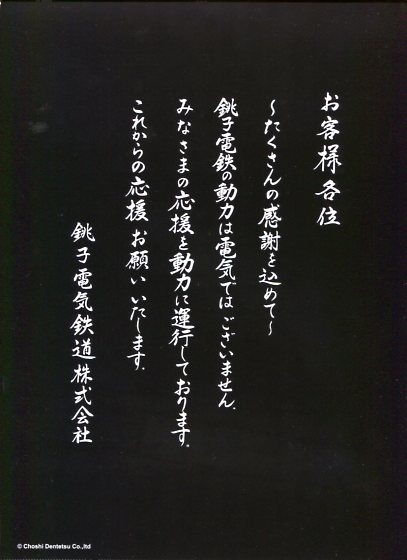 お客様各位
～たくさんの感謝を込めて～
銚子電鉄の動力は電気ではございません.
みなさまの応援を動力に運行しております.
これからの応援お願いいたします.
銚子電気鉄道株式会社
© Choshi Dentetsu Co.,ltd